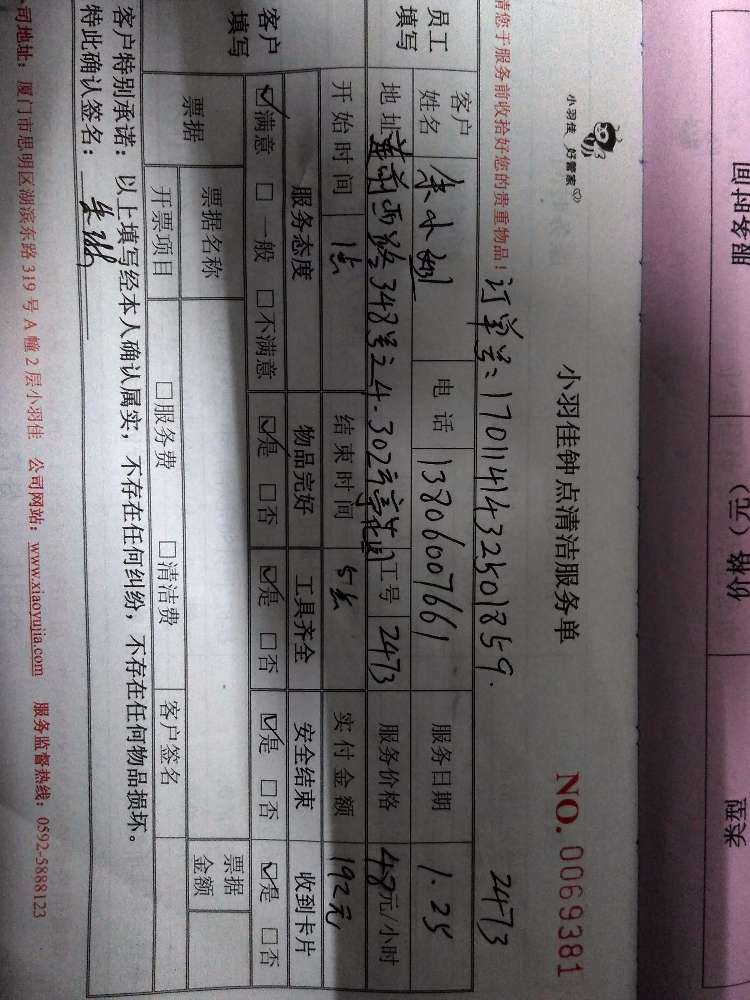 服务时间 价格（元） 类型
小羽佳 好管家
小羽佳钟点清洁服务单 NO. 0069381
请您于服务前收拾好您的贵重物品！ 订单号：1701141432501859. 2473
员工填写
客户姓名 电话 13806007661 服务日期 1.25
地址 莲前西路348号24-302 工号 2473 服务价格 48元/小时
开始时间 1点 结束时间 5点 实付金额 192元
客户填写
服务态度 物品完好 工具齐全 安全结束 收到卡片
☑满意 □一般 □不满意 ☑是 □否 ☑是 □否 ☑是 □否 ☑是 □否
票据 票据名称 票据金额
开票项目 □服务费 □清洁费 客户签名
客户特别承诺：以上填写经本人确认属实，不存在任何纠纷，不存在任何物品损坏。
特此确认签名：
司地址：厦门市思明区湖滨东路 319 号 A 幢 2 层小羽佳 公司网站：www.xiaoyujia.com 服务监督热线：0592-5888123